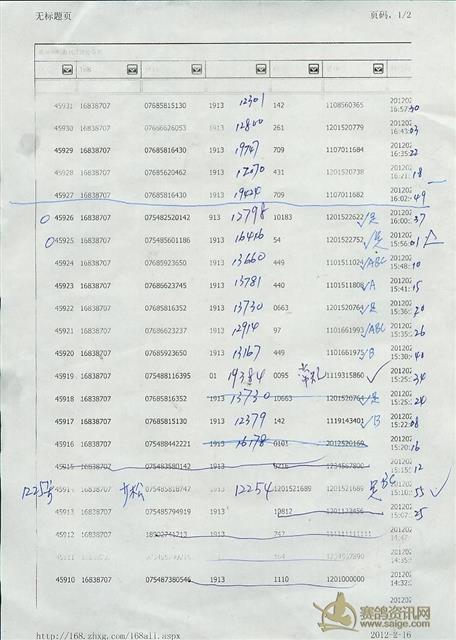 无标题页 页码，1/2
45931 16838707 07685815130 1913 12301 142 1108560365 201202 16:57:30
45930 16838707 07666626053 1913 12800 261 1201520779 201202 16:43:03
45929 16838707 07685816430 1913 19747 709 1107011684 201202 16:35:22
45928 16838707 07685620462 1913 431 1201520738 201202 18
45927 16838707 07685816430 1913 19424 709 1107011682 201202 16:02:49
0 45926 16838707 075482520142 913 12798 10183 1201522622 是 201202 16:00:37
0 45925 16838707 075485601186 1913 16416 54 1201522752 是 201202 15:56:01 △
45924 16838707 07685923650 1913 13660 449 1101511024 ABC 201202 15:48:10
45923 16838707 07686623745 1913 13781 440 1101511808 A 201202 15:41:15
45922 16838707 07685816352 1913 13730 0663 1201520764 是 201202 15:36:20
45921 16838707 07686623237 1913 12914 97 1101661993 ABC 201202 15:35:26
45920 16838707 07685923650 1913 13167 449 1101661975 B 201202 15:30:40
45919 16838707 075488116395 01 19384 0095 1119315860 201202 15:25:34
45918 16838707 07685816352 1913 13730 10663 1201520764 是 201202 15:25:24
45917 16838707 07685815130 1913 12379 142 1119143401 B 201202 15:22:08
45916 16838707 07548844​2221 1913 16178 0101 2012520169 201202 15:20:16
45915 16838707 075483580142 1913 9216 1234567800 201202 15:15:12
16838707 075485818747 12254 1201521689 1201521689 是 201202 15:10:53
45913 16838707 075485794919 1913 10812 1201123456 201202 15:07:25
45912 16838707 18902741213 1913 747 11111111111 201202
45910 16838707 075487380546 1913 1110 1201000000 201202 14:32:
赛鸽资讯网
www.saige.com
http://168.zhxg.com/168all.aspx 2012-2-16